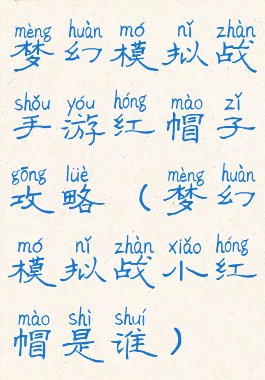 mèng huàn mó nǐ zhàn
梦幻模拟战
shǒu yóu hóng mào zǐ
手游红帽子
gōng lüè mèng huàn
攻略（梦幻
mó nǐ zhàn xiǎo hóng
模拟战小红
mào shì shuí
帽是谁）